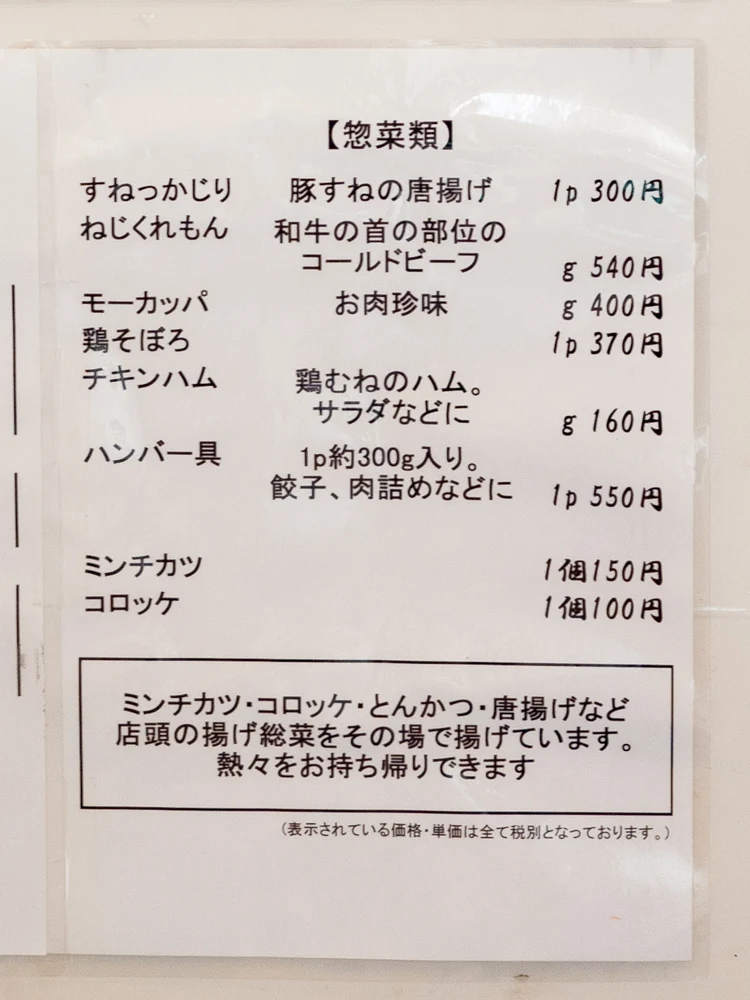 【惣菜類】
すねっかじり 豚すねの唐揚げ 1p 300円
ねじくれもん 和牛の首の部位の
コールドビーフ g 540円
モーカッパ お肉珍味 g 400円
鶏そぼろ 1p 370円
チキンハム 鶏むねのハム。
サラダなどに g 160円
ハンバー具 1p約300g入り。
餃子、肉詰めなどに 1p 550円
ミンチカツ 1個150円
コロッケ 1個100円
ミンチカツ・コロッケ・とんかつ・唐揚げなど
店頭の揚げ総菜をその場で揚げています。
熱々をお持ち帰りできます
（表示されている価格・単価は全て税別となっております。）